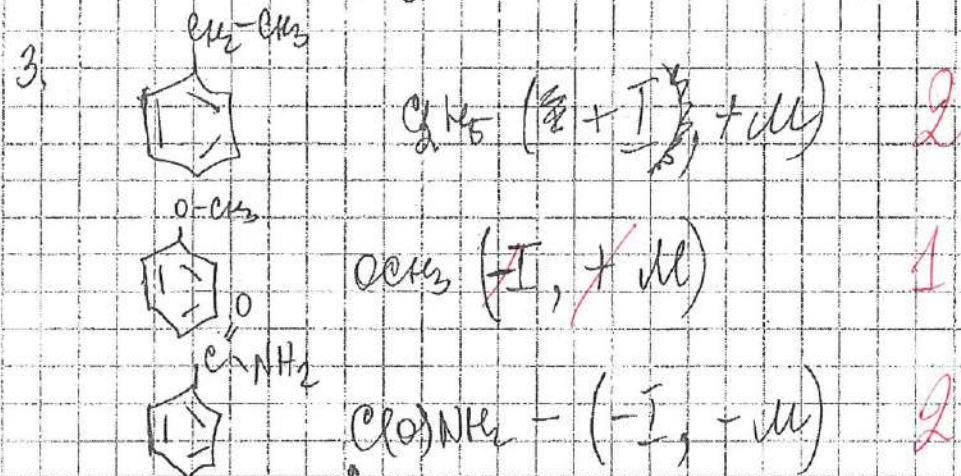 CH2-CH3
3.
C2H5 (+I, +M) 2
O-CH3
OCH3 (-I, + M) 1
O
C NH2
C(O)NH2 - (-I, -M) 2